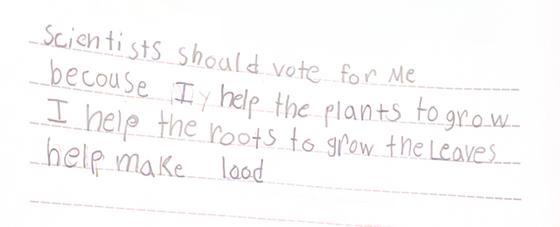 Scientists should vote for Me
becouse I help the plants to grow
I help the roots to grow the Leaves
help make lood